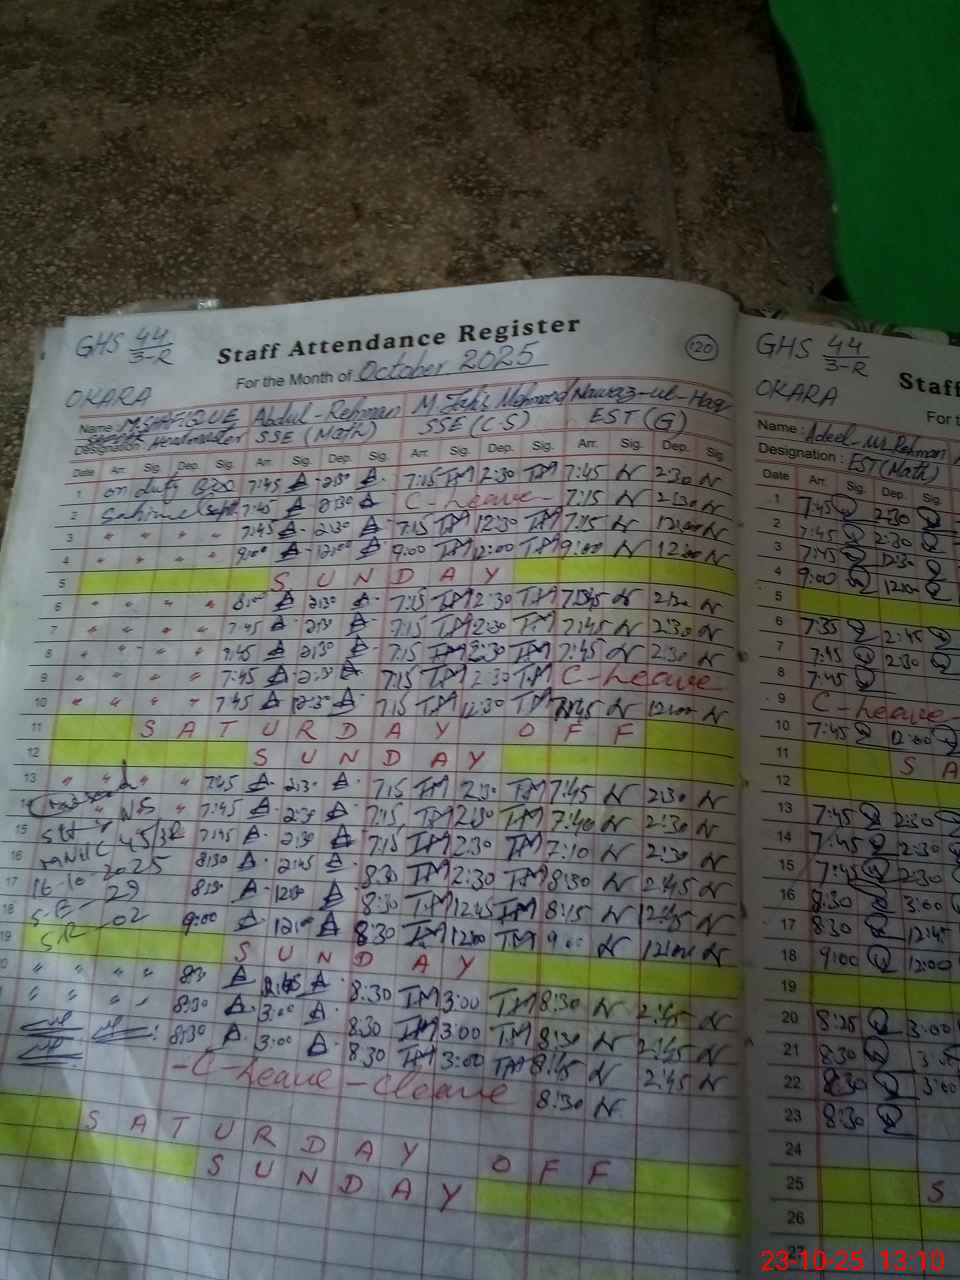 GHS 44/3-R
Staff Attendance Register
120
For the Month of October 2025
OKARA
Name: M.SHAFIQUE Abdul-Rehman M. Mahmood Nawaz-ul-Haq
Designation: Headmaster SSE (Math) SSE (C.S) EST (G)
Date Arr. Sig. Dep. Sig. Arr. Sig. Dep. Sig. Arr. Sig. Dep. Sig. Arr. Sig. Dep. Sig.
1 on duty 7:45 A 2:30 A 7:15 TM 2:30 TM 7:45 N 2:30 N
2 7:45 A 2:30 A C-Leave 7:15 N 2:30 N
3 " " " " 7:45 A 2:30 A 7:15 TM 12:30 TM 7:45 N 12:00 N
4 " " " " 9:00 A 12:00 A 9:00 TM 12:00 TM 9:00 N 12:00 N
5 SUNDAY
6 " " " " 8:00 A 2:30 A 7:15 TM 2:30 TM N 2:30 N
7 " " " " 7:45 A 2:30 A 7:15 TM 2:30 TM 7:45 N 2:30 N
8 " " " " 7:45 A 2:30 A 7:15 TM 2:30 TM 7:45 N 2:30 N
9 " " " " 7:45 A 2:30 A 7:15 TM 2:30 TM C-Leave
10 " " " " 7:45 A 12:30 A 7:15 TM 12:30 TM 7:45 N 12:00 N
11 SATURDAY OFF
12 SUNDAY
13 " " " " 7:45 A 2:30 A 7:15 TM 2:30 TM 7:45 N 2:30 N
14 NS " 7:45 A 2:30 A 7:15 TM 2:30 TM 7:40 N 2:30 N
15 45/3R 7:45 A 2:30 A 7:15 TM 2:30 TM 7:10 N 2:30 N
16 8:30 A 2:45 A 8:30 TM 2:30 TM 8:30 N 2:45 N
17 16-10-2025 8:30 A 12:30 A 8:30 TM 12:45 TM 8:15 N 12:45 N
18 S-E-29 9:00 A 12:00 A 8:30 TM 12:00 TM 9:00 N 12:00 N
SR-02
19 SUNDAY
" " " " 8:30 A 2:45 A 8:30 TM 3:00 TM 8:30 N 2:45 N
" " " " 8:30 A 3:00 A 8:30 TM 3:00 TM 8:30 N 2:45 N
8:30 A 3:00 A 8:30 TM 3:00 TM 8:45 N 2:45 N
-C-Leave - C leave 8:30 N
SATURDAY OFF
SUNDAY
GHS 44/3-R
Staff
OKARA
For t
Name: Adeel-ur-Rehman
Designation: EST(Math)
Date Arr. Sig. Dep. Sig.
1 7:45 2:30
2 7:45 2:30
3 7:45 12:30
4 9:00 12:00
5
6 7:35 2:45
7 7:45 2:30
8 7:45
9 C-Leave
10 7:45 12:00
11 SA
12
13 7:45 2:30
14 7:45 2:30
15 7:45 2:30
16 8:30 3:00
17 8:30 12:45
18 9:00 12:00
19
20 8:25 3:00
21 8:30
22 8:30 3:00
23 8:30
24
25 S
26
27
23-10-25 13:10